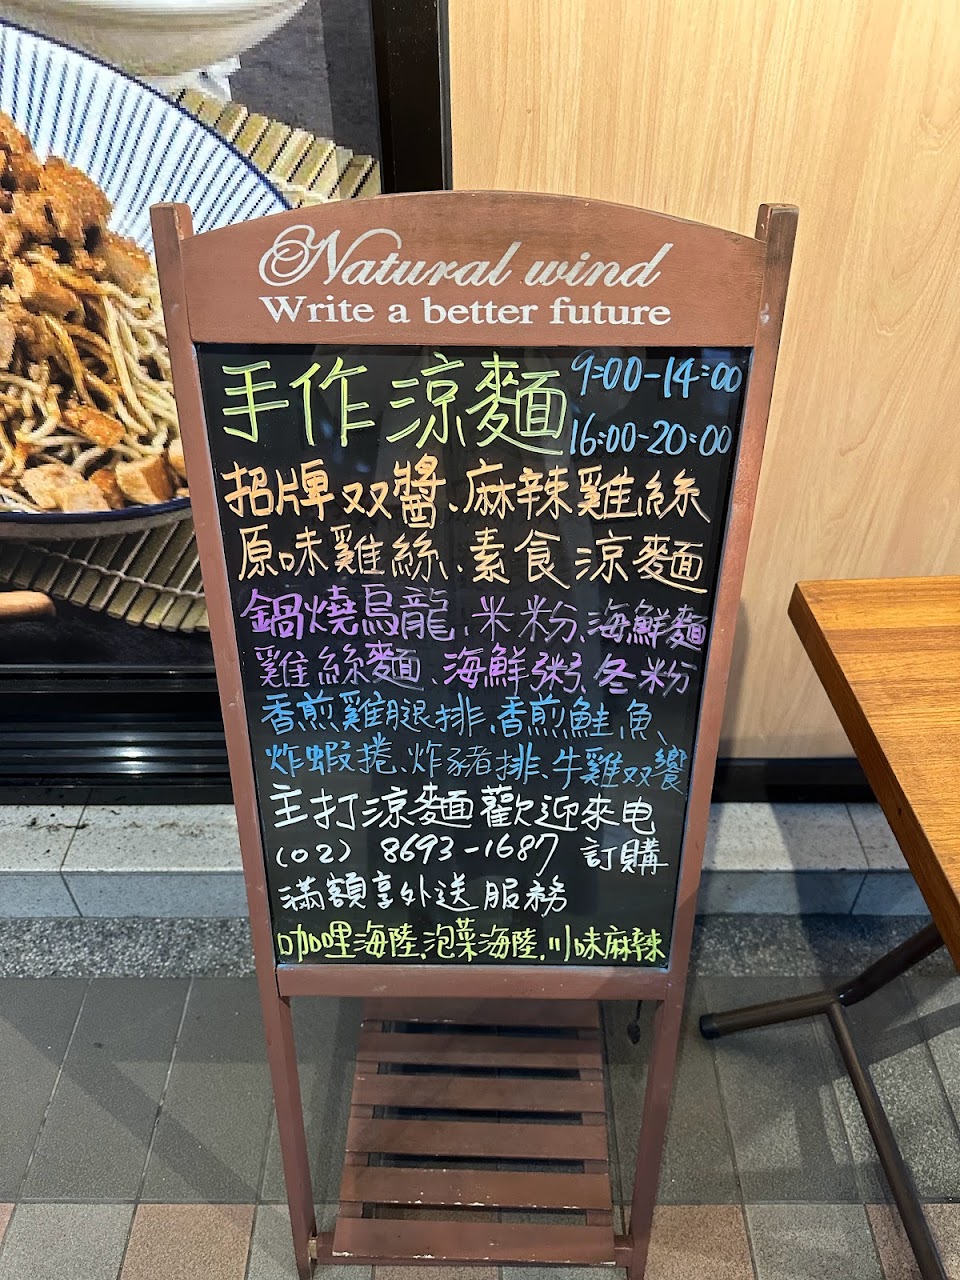 Natural wind
Write a better future
手作涼麵 9:00-14:00
16:00-20:00
招牌双醬、麻辣雞絲
原味雞絲、素食涼麵
鍋燒烏龍、米粉、海鮮麵
雞絲麵、海鮮粥、冬粉
香煎雞腿排、香煎鮭魚、
炸蝦捲、炸豬排、牛雞双饗
主打涼麵歡迎來电
(02) 8693-1687 訂購
滿額享外送服務
咖哩海陸、泡菜海陸、川味麻辣